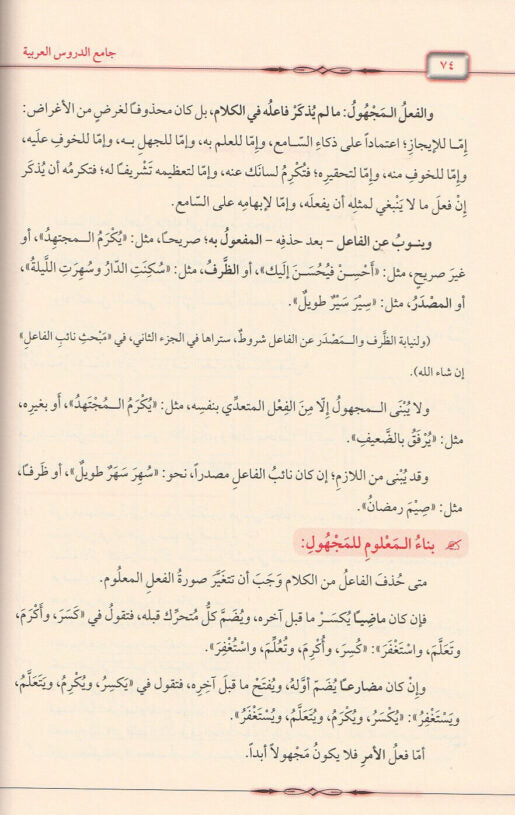 جامع الدروس العربية
٧٤
والفعلُ المَجْهُولُ: ما لم يُذكَرْ فاعلُه في الكلام، بل كان محذوفًا لغرضٍ من الأغراض:
إمَّا للإيجازِ؛ اعتماداً على ذكاءِ السَّامع، وإمَّا للعلم به، وإمَّا للجهلِ بـه، وإمَّا للخوفِ عليه،
وإمَّا للخوفِ منه، وإمَّا لتحقيرِه؛ فتُكْرِمُ لسانَك عنه، وإمَّا لتعظيمِه تَشْريفًا له؛ فتكرمُه أن يُذكَر
إنْ فعلَ ما لا يَنْبغي لمثلِه أن يفعلَه، وإمَّا لإبهامِه على السَّامع.
وينـوبُ عن الفاعل – بعد حذفِه – المفعولُ به؛ صريحًا، مثل: «يُكْرَمُ الـمجتهدُ»، أو
غيرَ صريحٍ، مثل: «أَحْسِنْ فيُحْسَنَ إليك»، أو الظَّرفُ، مثل: «سُكِنَتِ الدَّارُ وسُهِرَتِ اللَّيلةُ»،
أو المصْدَرُ، مثل: «سِيْرَ سَيْرٌ طويلٌ».
(ولنيابة الظَّرف والـمَصْدَر عن الفاعل شروطٌ، ستراها في الجزء الثاني، في «مَبْحثِ نائبِ الفاعلِ»
إن شاء الله).
ولا يُبْنَى الـمجهولُ إلّا مِنَ الفِعْل المتعدِّي بنفسِه، مثل: «يُكْرَمُ الـمُجْتَهدُ»، أو بغيرِه،
مثل: «يُرْفَقُ بالضَّعيفِ».
وقد يُبْنى من اللازمِ؛ إن كان نائبُ الفاعلِ مصدراً، نحو: «سُهِرَ سَهَرٌ طويلٌ»، أو ظَرفًا،
مثل: «صِيْمَ رمضانُ».
بناءُ الـمَعْلومِ للمَجْهُولِ:
متى حُذفَ الفاعلُ من الكلام وَجَبَ أن تتغَيَّرَ صورةُ الفعلِ المعلُوم.
فإن كان ماضيًا يُكسَـرْ ما قبل آخره، ويُضَمّ كلُّ متحرِّك قبله، فتقولُ في «كَسَرَ، وأَكْرَمَ،
وتَعَلَّمَ، واسْتَغْفَرَ»: «كُسِرَ، وأُكْرِمَ، وتُعُلِّمَ، واسْتُغْفِرَ».
وإنْ كان مضارعـًا يُضَمّ أوَّلهُ، ويُفتَح ما قبلَ آخِرِه، فتقول في «يَكسِرُ، ويُكْرِمُ، ويَتَعَلَّمُ،
ويَسْتَغْفِرُ»: «يُكْسَرُ، ويُكْرَمُ، ويُتَعَلَّمُ، ويُسْتَغْفَرُ».
أمّا فعلُ الأمرِ فلا يكونُ مَجْهولاً أبداً.